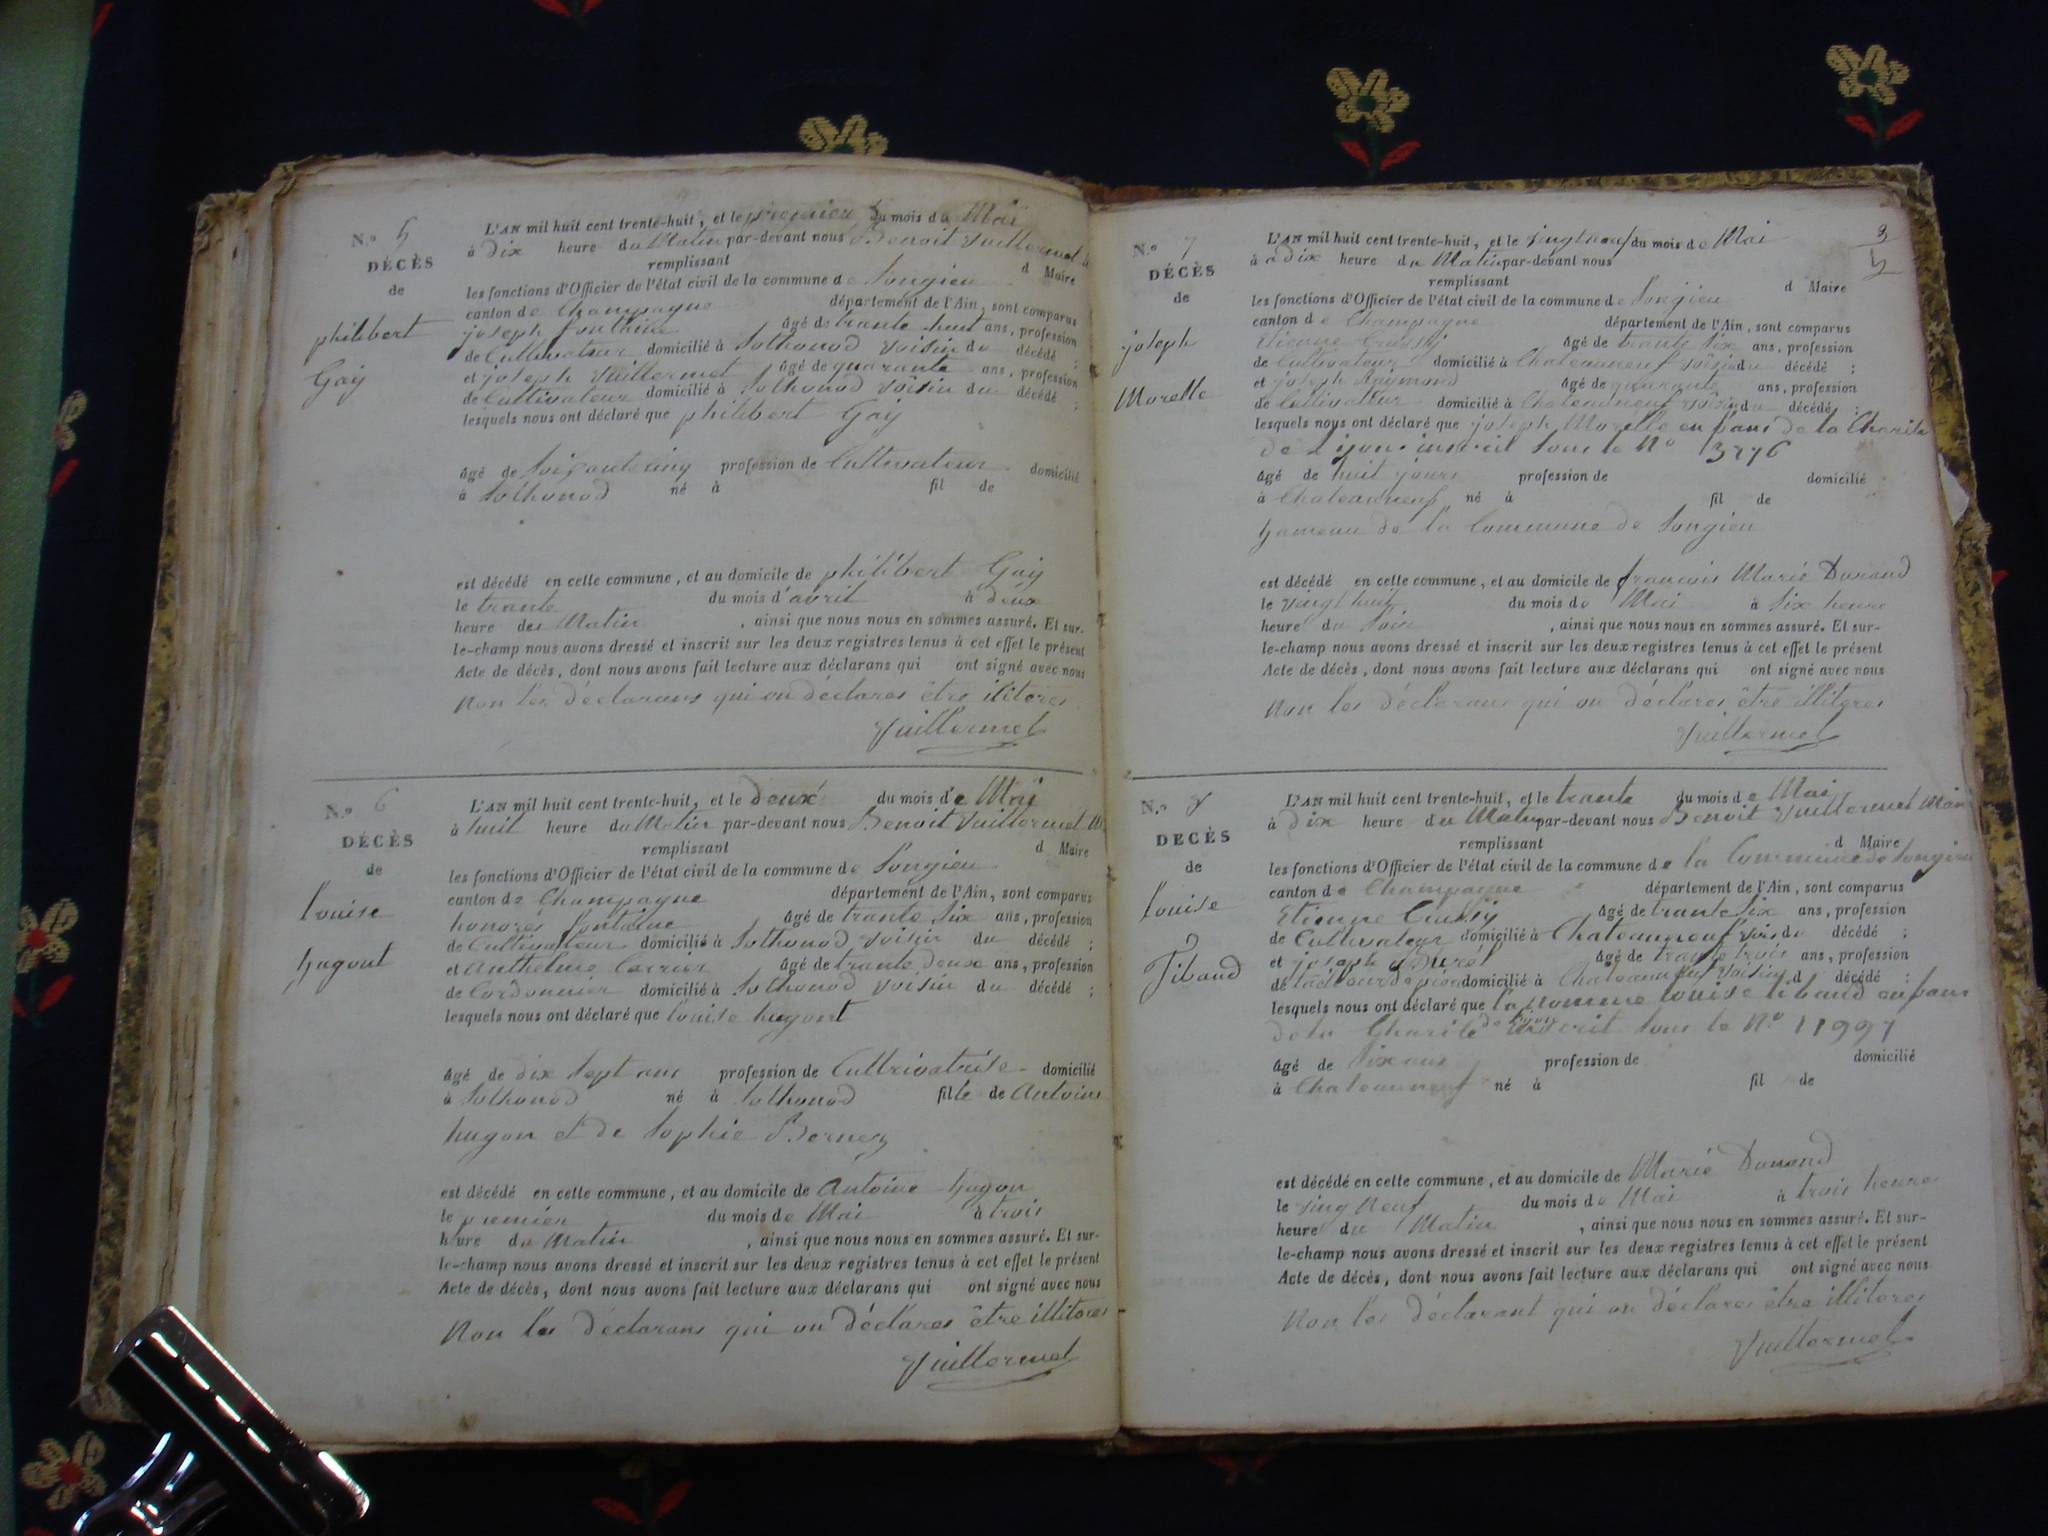 N.o 5
DÉCÈS
de
philibert
Gay
L'AN mil huit cent trente-huit, et le premier du mois de Mai
à Dix heure du Matin par-devant nous Benoit Vuillermet
remplissant d Maire
les fonctions d'Officier de l'état civil de la commune de Songieu
canton de Champagne département de l'Ain, sont comparus
joseph fontaine âgé de trante huit ans, profession
de Cultivateur domicilié à Sothonod voisin du décédé ;
et joseph Vuillermet âgé de quarante ans, profession
de Cultivateur domicilié à Sothonod voisin du décédé ;
lesquels nous ont déclaré que philibert Gay
âgé de Soixante cinq profession de Cultivateur domicilié
à Sothonod né à fil de
est décédé en cette commune, et au domicile de philibert Gay
le trante du mois d'avril à deux
heure des Matin , ainsi que nous nous en sommes assuré. Et sur-
le-champ nous avons dressé et inscrit sur les deux registres tenus à cet effet le présent
Acte de décès, dont nous avons fait lecture aux déclarans qui ont signé avec nous
Non les déclarans qui on déclares être iliteres
Vuillermet
N.o 6
DÉCÈS
de
Louise
hugont
L'AN mil huit cent trente-huit, et le deux du mois de Mai
à huit heure du Matin par-devant nous Benoit Vuillermet
remplissant d Maire
les fonctions d'Officier de l'état civil de la commune de Songieu
canton de Champagne département de l'Ain, sont comparus
honorés fontaine âgé de trante Six ans, profession
de Cultivateur domicilié à Sothonod voisin du décédé ;
et Anthelme Carrier âgé de trante deux ans, profession
de Cordonnier domicilié à Sothonod voisin du décédé ;
lesquels nous ont déclaré que louise hugont
âgé de dix Sept ans profession de Cultrivatrise domicilié
à Sothonod né à Sothonod fille de Antoine
hugon et de Sophie Bernez
est décédé en cette commune, et au domicile de Antoine hugon
le premier du mois de Mai à trois
heure du Matin , ainsi que nous nous en sommes assuré. Et sur-
le-champ nous avons dressé et inscrit sur les deux registres tenus à cet effet le présent
Acte de décès, dont nous avons fait lecture aux déclarans qui ont signé avec nous
Non les déclarans qui on déclares être illiteres
Vuillermet
N.o 7
DÉCÈS
de
joseph
Morelle
L'AN mil huit cent trente-huit, et le vingt neuf du mois de Mai
à Dix heure du Matin par-devant nous
remplissant d Maire
les fonctions d'Officier de l'état civil de la commune de Songieu
canton de Champagne département de l'Ain, sont comparus
Etienne âgé de trante Six ans, profession
de Cultivateur domicilié à Chateauneuf voisin du décédé ;
et joseph Raymond âgé de quarante ans, profession
de Cultivateur domicilié à Chateauneuf voisin du décédé ;
lesquels nous ont déclaré que joseph Morelle enfans de la Charite
de Lyon inscrit Sous le No 13776
âgé de huit jours profession de domicilié
à Chateauneuf né à fil de
hameau de la Commune de Songieu
est décédé en cette commune, et au domicile de francois Marie Durand
le vingt huit du mois de Mai à Six heure
heure du Soir , ainsi que nous nous en sommes assuré. Et sur-
le-champ nous avons dressé et inscrit sur les deux registres tenus à cet effet le présent
Acte de décès, dont nous avons fait lecture aux déclarans qui ont signé avec nous
Non les déclarans qui on déclares être illiteres
Vuillermet
N.o 8
DÉCÈS
de
Louise
Tibaud
L'AN mil huit cent trente-huit, et le trante du mois de Mai
à Dix heure du Matin par-devant nous Benoit Vuillermet Mair
remplissant d Maire
les fonctions d'Officier de l'état civil de la commune de la Commune de Songieu
canton de Champagne département de l'Ain, sont comparus
Etienne âgé de trante Six ans, profession
de Cultivateur domicilié à Chateauneuf voisin du décédé ;
et joseph âgé de trante trois ans, profession
de domicilié à Chateauneuf voisin d décédé ;
lesquels nous ont déclaré que la nommé louise tibaud enfans
de la Charité de Lyon inscrit Sous le No 11997
âgé de Six ans profession de domicilié
à Chateauneuf né à fil de
est décédé en cette commune, et au domicile de Marie Durand
le vingt Neuf du mois de Mai à trois heure
heure du Matin , ainsi que nous nous en sommes assuré. Et sur-
le-champ nous avons dressé et inscrit sur les deux registres tenus à cet effet le présent
Acte de décès, dont nous avons fait lecture aux déclarans qui ont signé avec nous
Non les déclarant qui on déclares être illiteres
Vuillermet